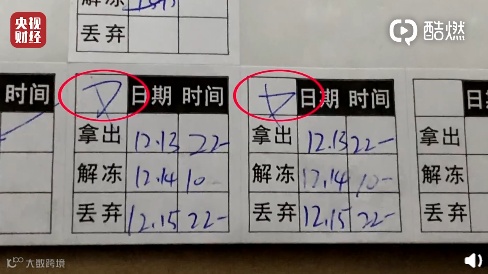 央视
财经
酷燃
丢弃
时间 日期 时间 日期 时间 日期
拿出 12.13 22- 拿出 12.13 22- 拿出
解冻 12.14 10- 解冻 12.14 10- 解冻
丢弃 12.15 22- 丢弃 12.15 22- 丢弃
大数跨境